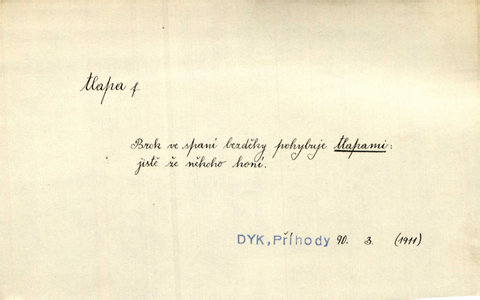 tlapa f.
Brok ve spaní bezděky pohybuje tlapami:
jistě že někoho honí.
DYK, Příhody 90. 3. (1911)